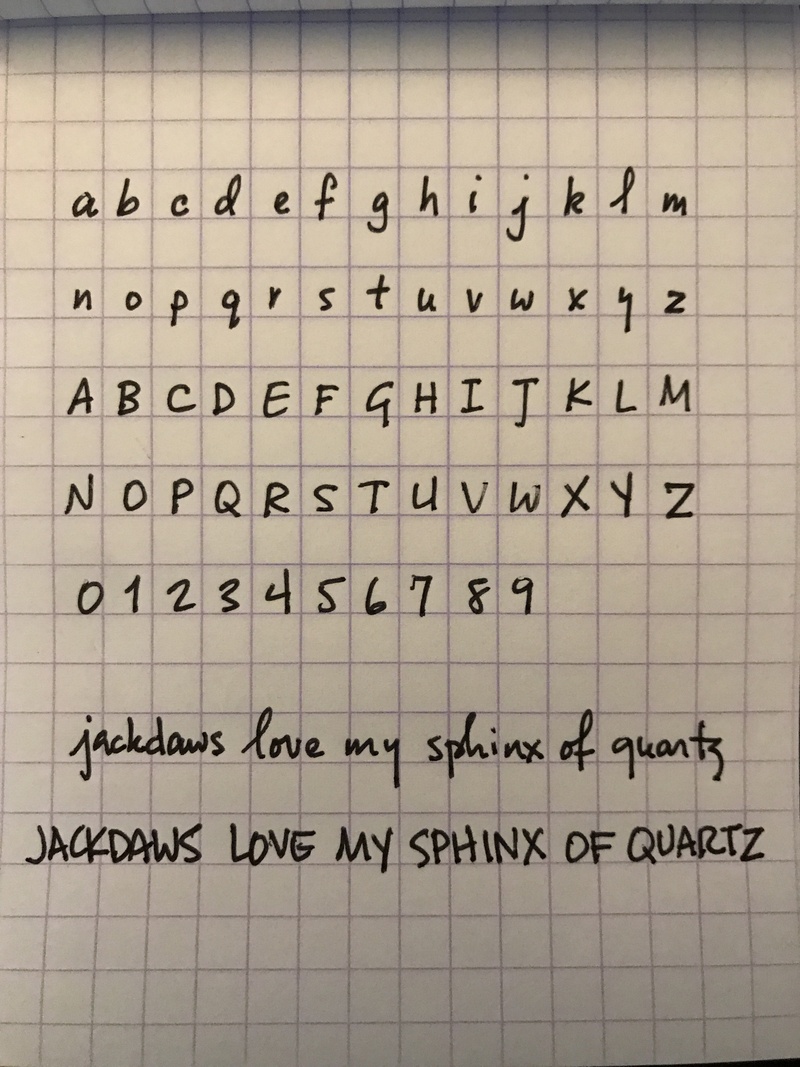 a b c d e f g h i j k l m
n o p q r s t u v w x y z
A B C D E F G H I J K L M
N O P Q R S T U V W X Y Z
0 1 2 3 4 5 6 7 8 9
jackdaws love my sphinx of quartz
JACKDAWS LOVE MY SPHINX OF QUARTZ